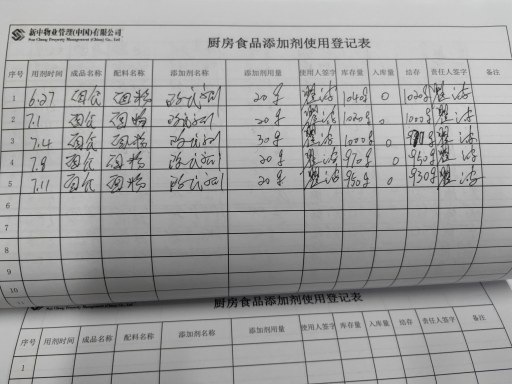 新中物业管理(中国)有限公司
Sun Chung Property Management (China) Co., Ltd.
厨房食品添加剂使用登记表
序号 用剂时间 成品名称 配料名称 添加剂名称 添加剂用量 使用人签字 库存量 入库量 结存 责任人签字 备注
1 6.27 面食 面粉 改良剂 20g 1040g 0 1020g
2 7.1 面食 面粉 改良剂 20g 1020g 0 1000g
3 7.4 面食 面粉 改良剂 30g 1000g 0
4 7.9 面食 面粉 改良剂 20g 970g 0 950g
5 7.11 面食 面粉 改良剂 20g 950g 0 930g
6
7
8
9
10
厨房食品添加剂使用登记表
序号 用剂时间 成品名称 配料名称 添加剂名称 添加剂用量 使用人签字 库存量 入库量 结存 责任人签字 备注
1